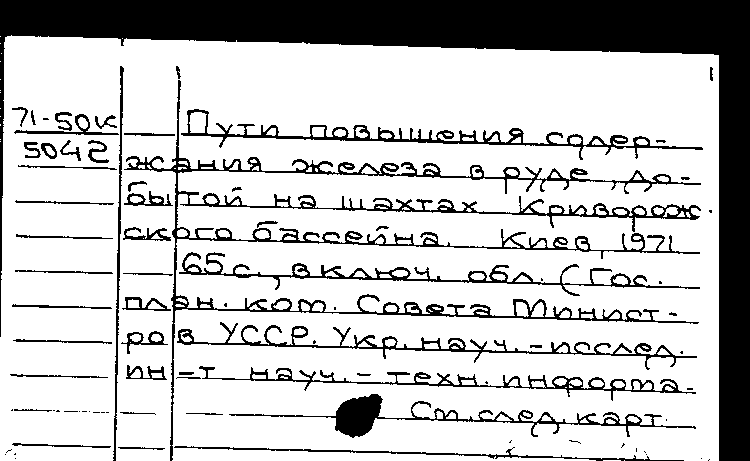 71-50к Пути повышения содер-
5042 жания железа в руде, до-
бытой на шахтах Криворож-
ского бассейна. Киев, 1971
65 с., включ. обл. (Гос.
план. ком. Совета Минист-
ров УССР. Укр. науч.-исслед.
ин-т науч.-техн. информа-
См. след. карт.